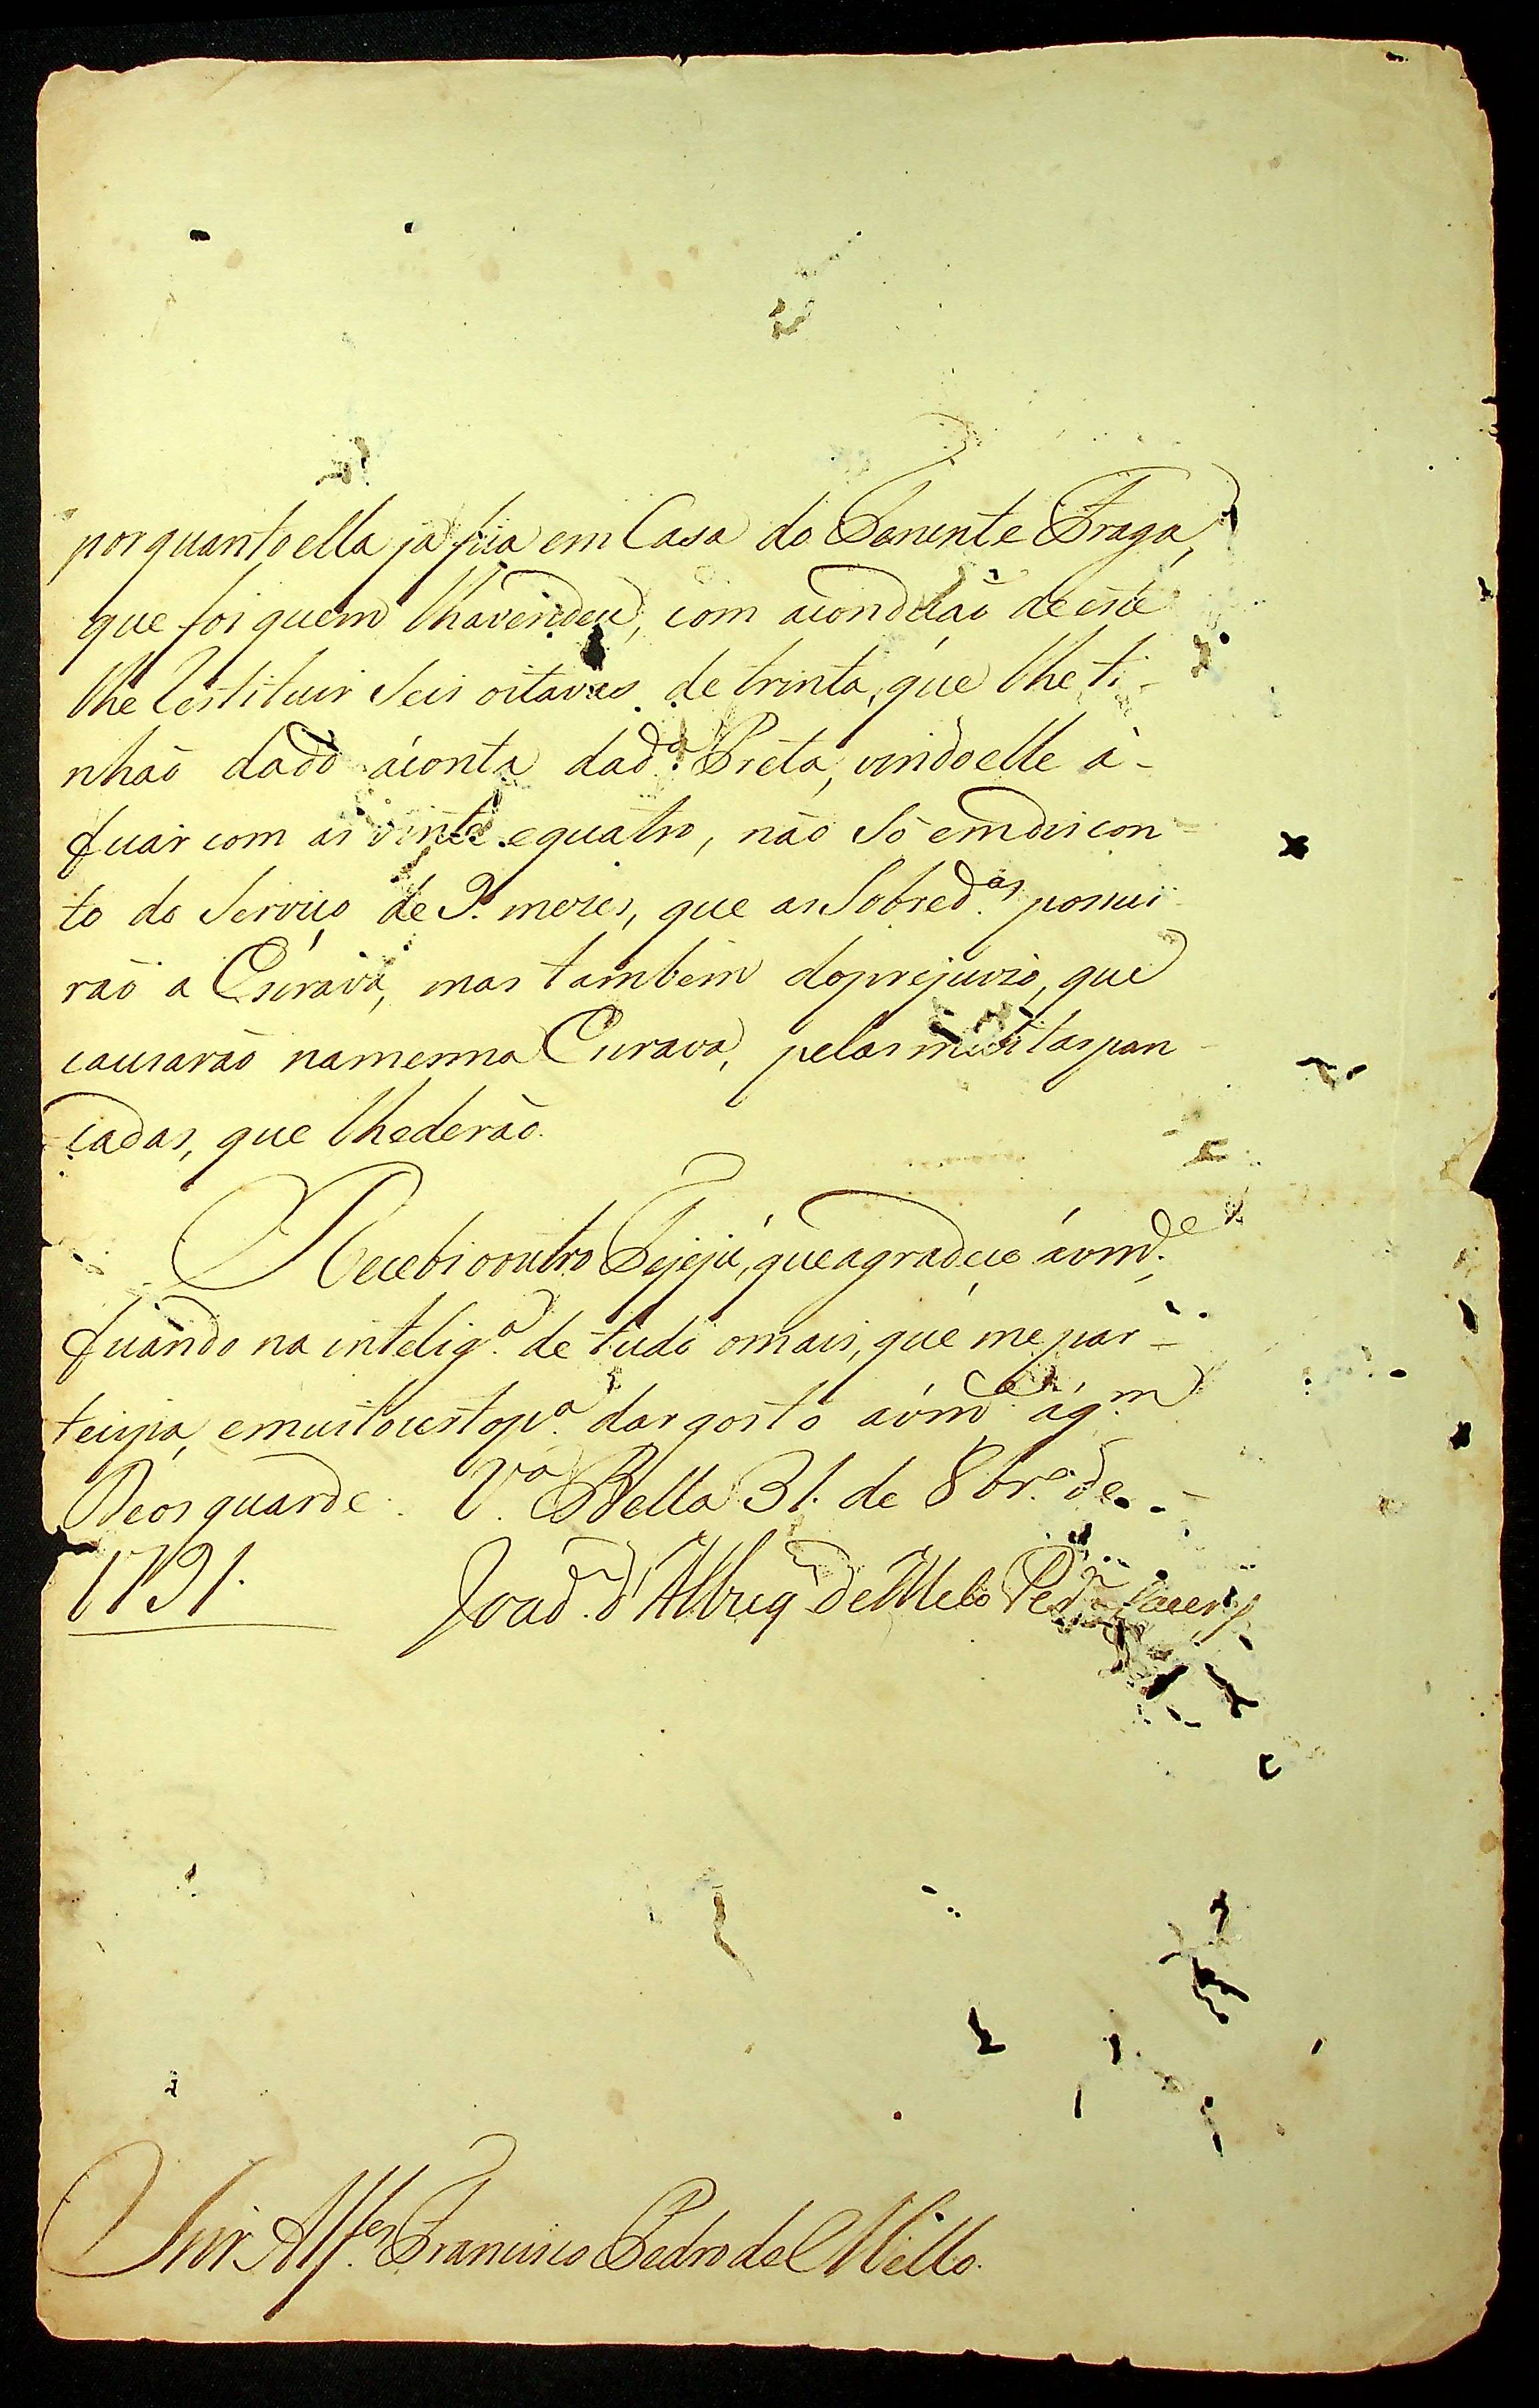 porquanto ella já fica em Casa do Tenente Fraga,
que foi quem lhavendeu, com acondição de este
lhe restituir seis oitavas de trinta, que lhe ti-
nhão dado áconta dad.ª Preta, vindo elle á-
ficar com as vinte equatro, não só emdiscon-
to do Serviço de 9. mezes, que as Sobred.as possui-
rão a Escrava, mas tambem doprejuizo, que
causarão namesma Escrava, pelas muitas pan-
cadas, que lhederão.
Recebi ooutro Tejejú, queagradeço ávm.ce,
ficando na intelig.ª de tudo omais, que me par-
tecipa, emuito p.ª dar gosto ávm.ce ág.m
Deos guarde. V.ª Bella 31. de 8br.º de
1791. Joaõ d'Albuq de Mello Per.ª Caceres
Snr Alf.es Francisco Pedro de Mello.